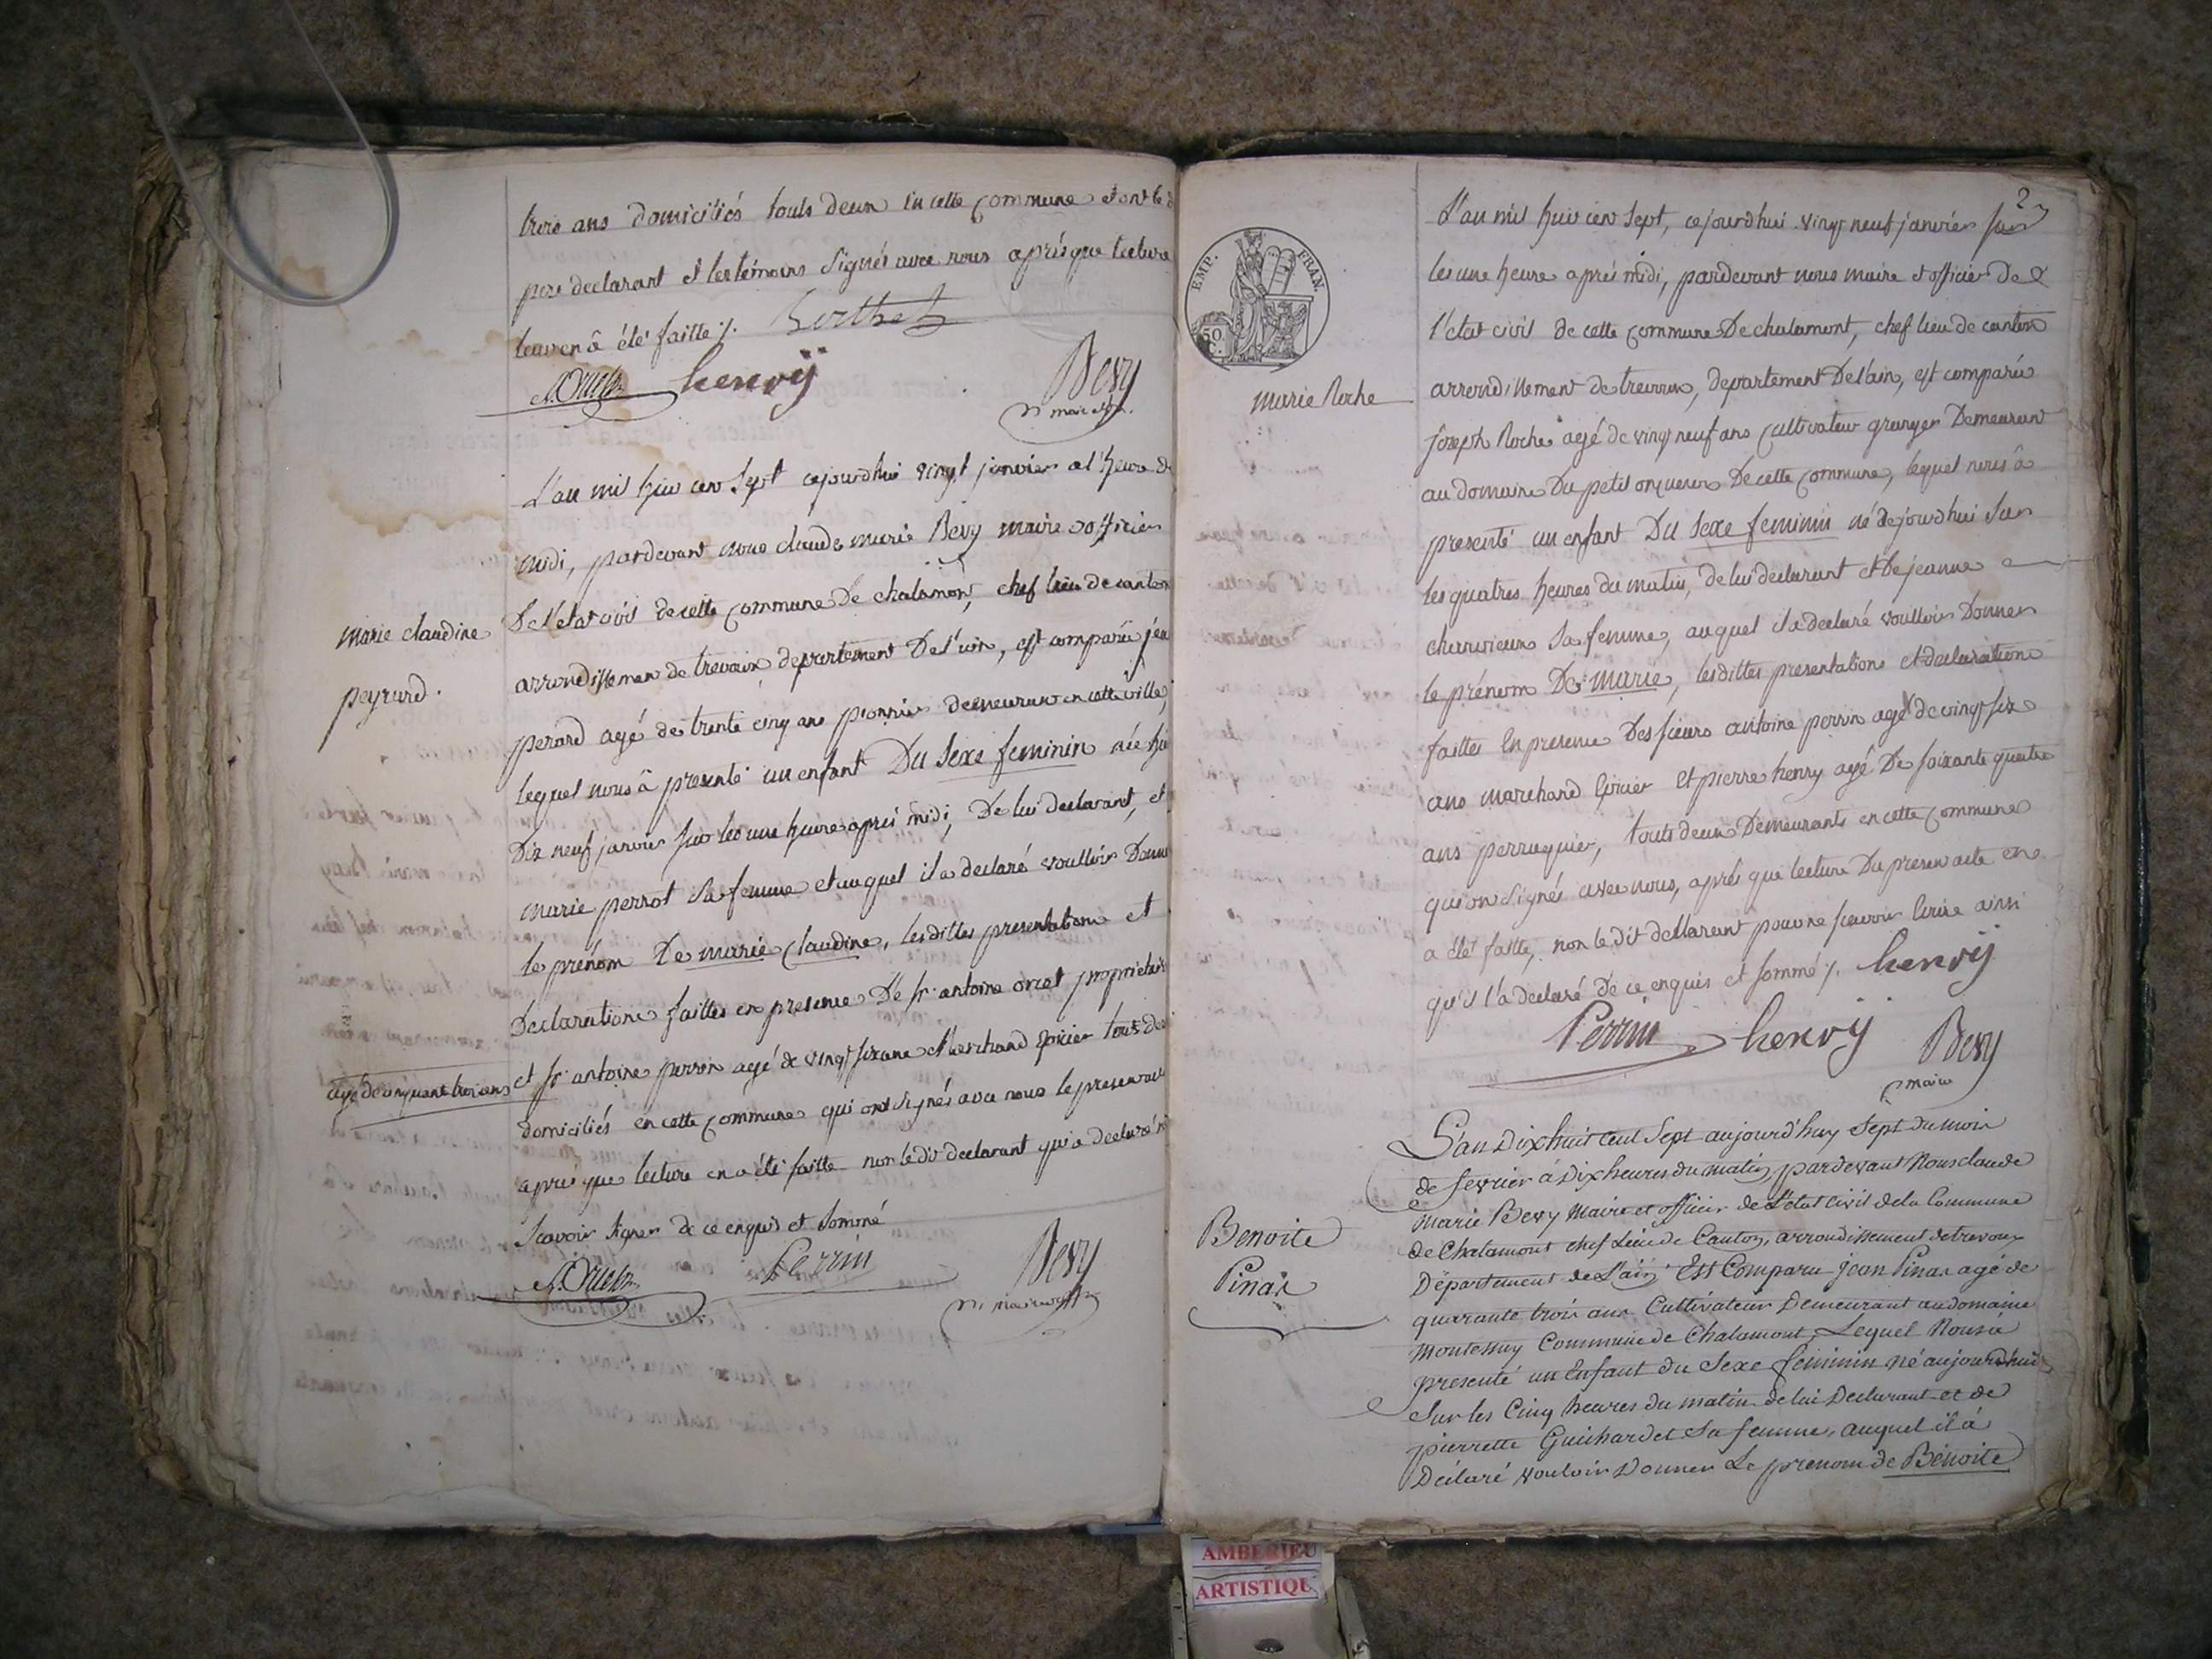 trois ans domiciliés touts deux en cette commune et ont le
pere declarant et les témoins signés avec nous après que lecture
leur en â été faitte ⁒. Berthet
henrÿ
Bevy
maire
L'an mil huit cent sept cejourdhui vingt janvier a l'heure de
midi, pardevant nous claude marie Bevy maire officier
De l'etat civil de cette commune de chalamont, chef lieu de canton
marie claudine
peyrard.
arrondissement de trevoux departement De l'ain, est comparu jean
perard agé de trente cinq ans pionnier demeurant en cette ville,
lequel nous â presenté un enfant Du sexe feminin née hier
Dix neuf janvier sur les une heure après midi, De lui declarant, et
marie perrot sa femme et auquel il a declaré voulloir Donner
le prénom De marie claudine, lesdittes presentation et
Declaration faittes en presence De sr. antoine orcet proprietaire
agé de cinquant trois ans
et sr. antoine perrin agé de vingt six ans Marchand epicier tous deux
domiciliés en cette commune qui ont signés avec nous le present acte
après que lecture en a été faitte non le dit declarant qui a declaré
scavoir signer de ce enquis et sommé
Perrin
Bevy
maire
2
EMP. FRAN.
50 C.
L'an mil huit cent sept, cejourdhui vingt neuf janvier sur
les une heure après midi, pardevant nous maire et officier De
l'état civil de cette commune De chalamont, chef lieu de canton
marie Roche
arrondissement de trevoux, departement De l'ain, est comparu
joseph Roche agé de vingt neuf ans cultivateur granger Demeurant
au domaine Du petit De cette commune, lequel nous â
presenté un enfant Du sexe feminin né cejourdhui sur
les quatres heures du matin, de lui declarant et De jeanne
sa femme, auquel il a declaré voulloir Donner
le prénom De marie, lesdittes presentation et declaration
faittes En presence Des sieurs antoine perrin agé de vingt six
ans marchand Epicier Et pierre henry agé De soixante quatre
ans perruquier, touts deux Demeurants en cette commune
qui on signés avec nous, après que lecture Du present acte en
a été faitte, non le dit declarant pour ne scavoir Ecrire ainsi
qu'il l'a declaré De ce enquis et sommé ⁒. henrÿ
Perrin henrÿ Bevy
maire
L'an Dix huit cent Sept aujourd'huy Sept du mois
de fevrier à Dix heures du matin, pardevant Nous claude
Marie Bevy Maire et officier de L'état civil de la Commune
Benoite
Pinax
de Chalamont chef Lieu de Canton, arrondissement de trevoux
Département de L'ain Est Comparu jean Pinax agé de
quarante trois ans Cultivateur Demeurant au domaine
Montessuy Commune de Chalamont, Lequel Nous à
presenté un Enfant du Sexe feminin né aujourd'hui
Sur les Cinq heures du matin de lui Declarant et de
pierrette Guichardet Sa femme, auquel il à
Déclaré vouloir Donner Le prenom de Bénoite
AMBERIEU
ARTISTIQU